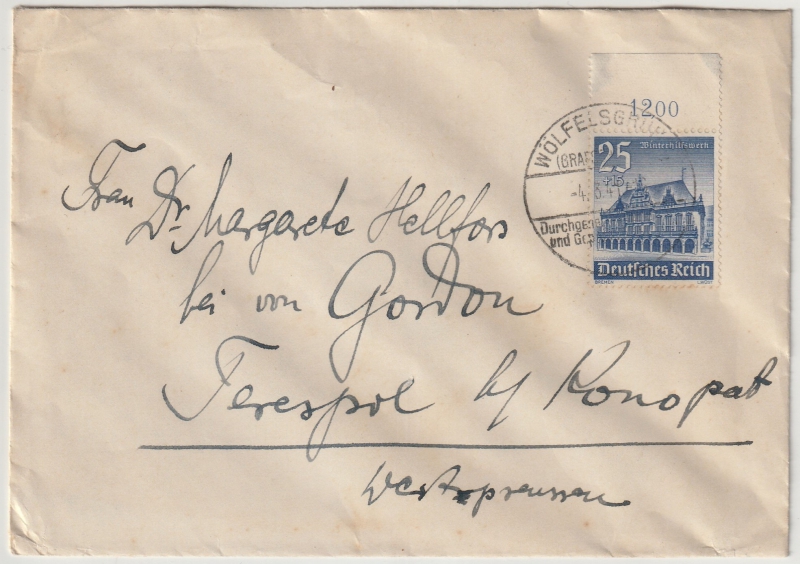 1200
WÖLFELSGRU
(GRAFS
-4. 6.4
Durchge
und Ge
25
+15
Winterhilfswerk
Deutsches Reich
BREMEN
Frau Dr. Margarete Hellfors
bei von Gordon
Terespol b/ Konopat
Westpreussen